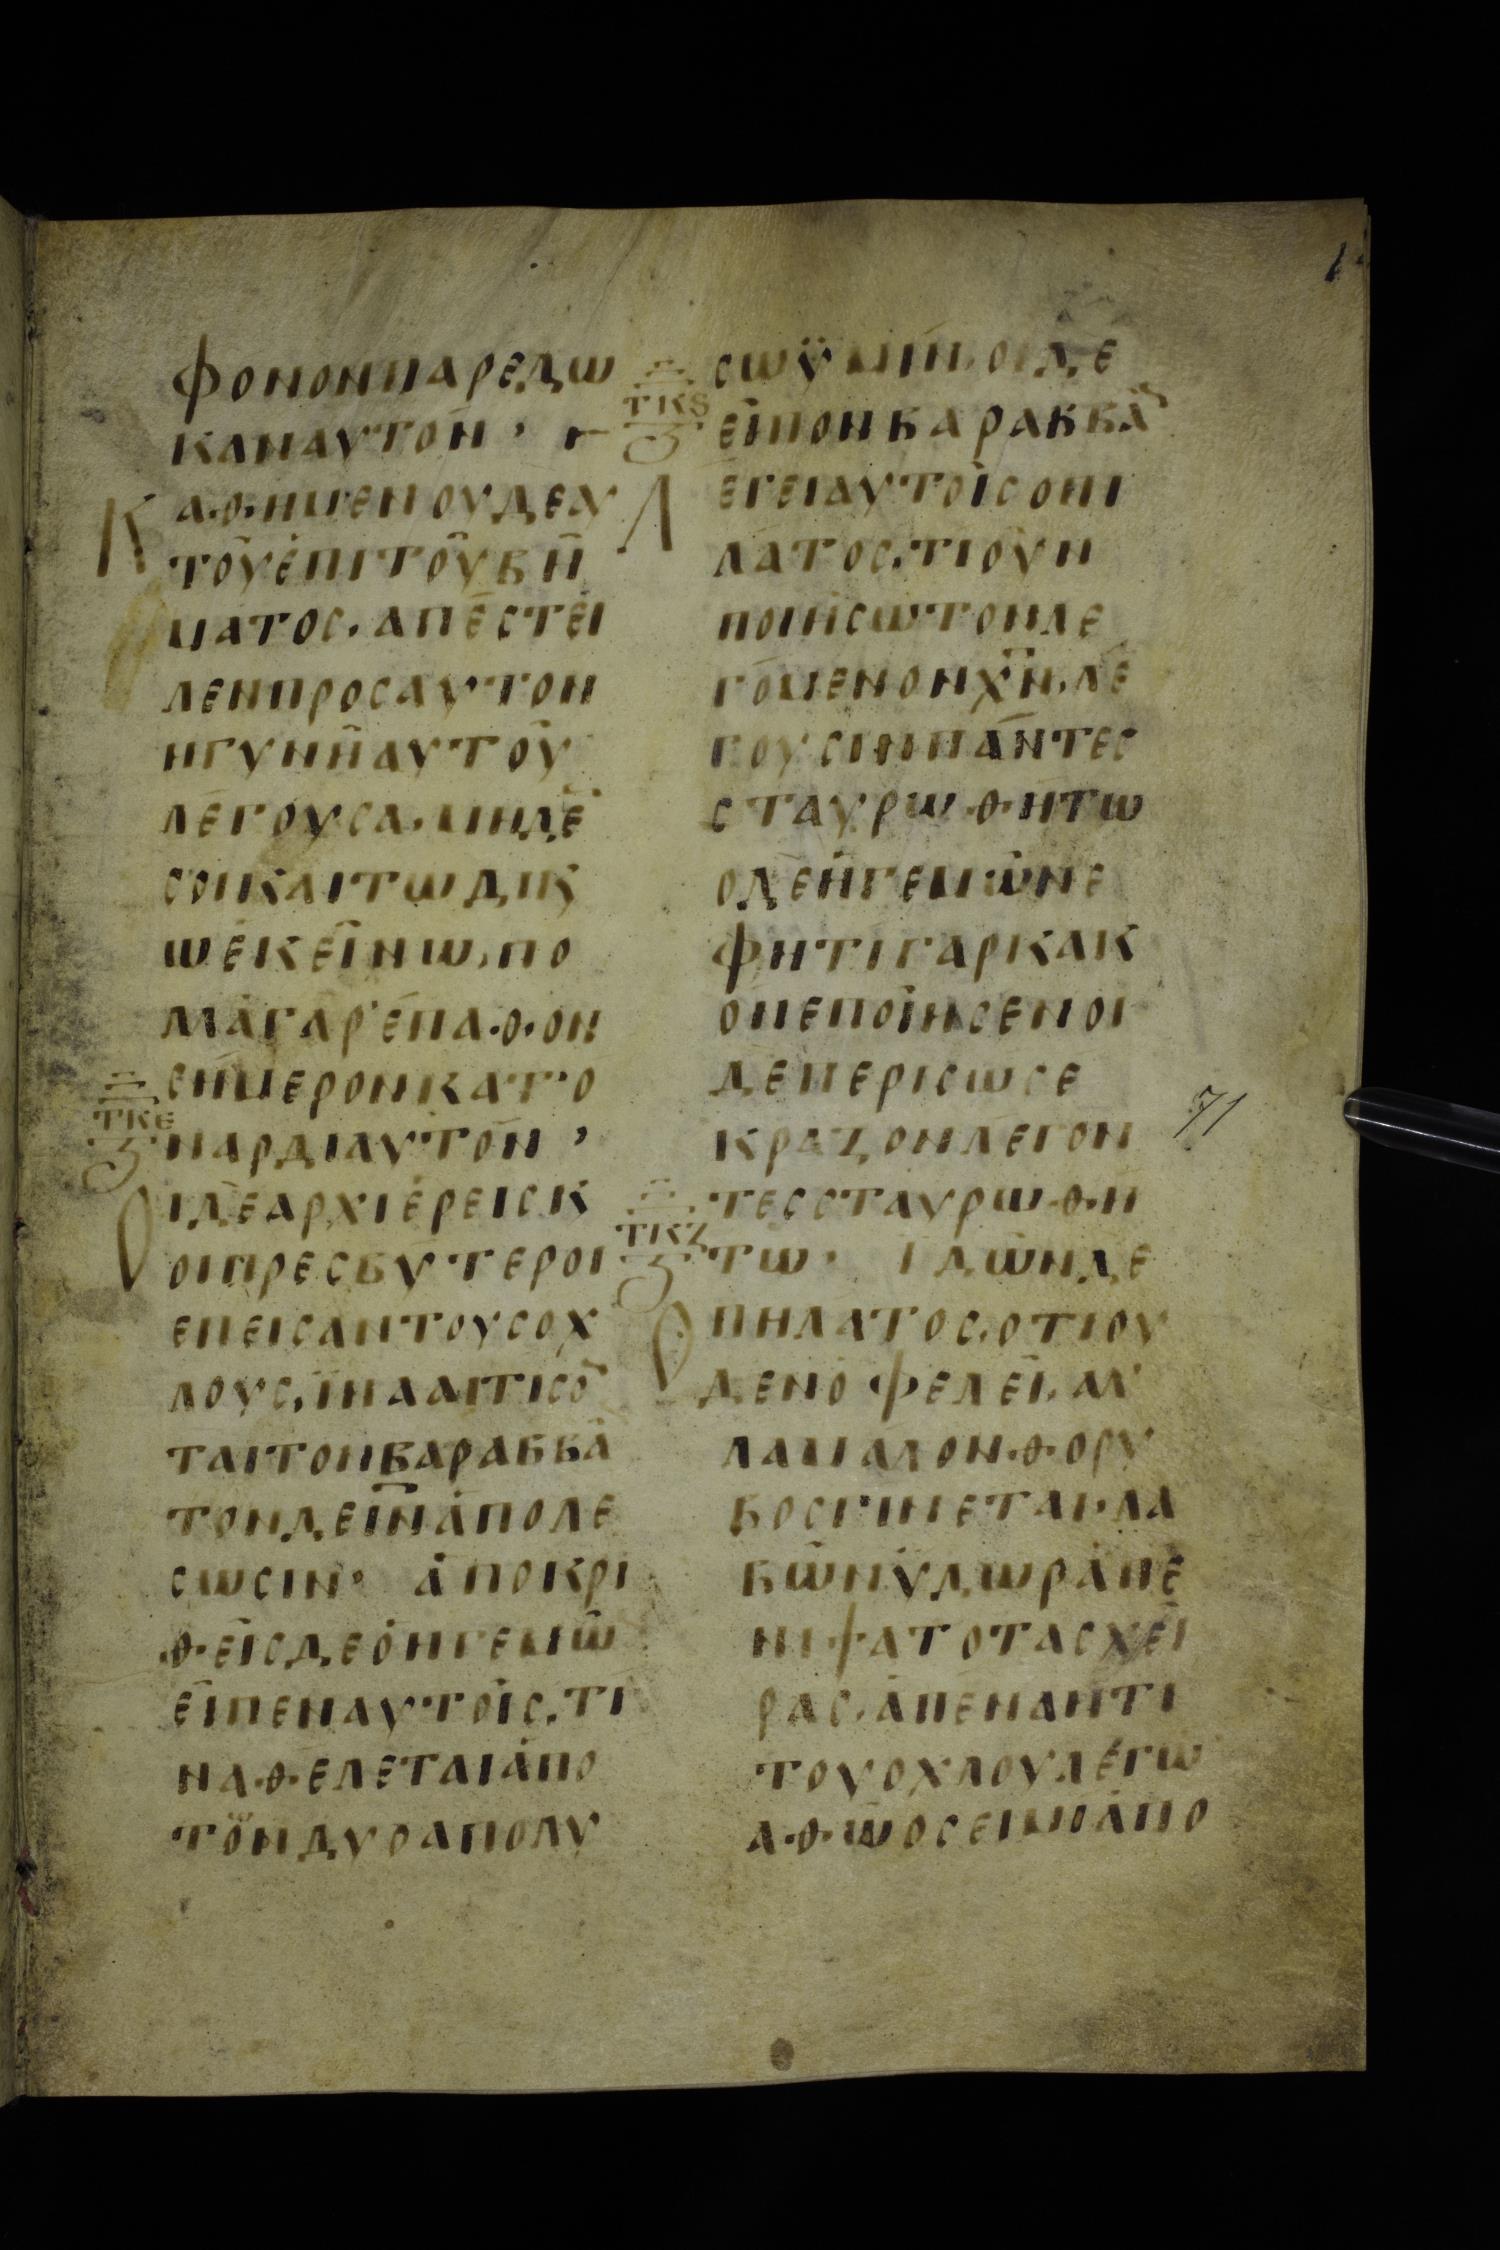 ΦΟΝΟΝΠΑΡΕΔΩ
ΚΑΝΑΥΤΟΝ·
ΚΑΘΗΜΕΝΟΥΔΕΑΥ
ΤΟΥΕΠΙΤΟΥΒΗ
ΜΑΤΟΣ. ΑΠΕΣΤΕΙ
ΛΕΝΠΡΟΣΑΥΤΟΝ
ΗΓΥΝΗΑΥΤΟΥ
ΛΕΓΟΥΣΑ. ΜΗΔΕ
ΣΟΙΚΑΙΤΩΔΙΚ
ΩΕΚΕΙΝΩ. ΠΟ
ΛΛΑΓΑΡΕΠΑΘΟΝ
ΣΗΜΕΡΟΝΚΑΤΟ
ΤΚΕ
Ζ
ΝΑΡΔΙΑΥΤΟΝ,
ΟΙΔΕΑΡΧΙΕΡΕΙΣΚ
ΟΙΠΡΕΣΒΥΤΕΡΟΙ
ΕΠΕΙΣΑΝΤΟΥΣΟΧ
ΛΟΥΣ. ΪΝΑΑΙΤΙΣΟ
ΤΑΙΤΟΝΒΑΡΑΒΒΑ
ΤΟΝΔΕΙΝΑΠΟΛΕ
ΣΩΣΙΝ· ΑΠΟΚΡΙ
ΘΕΙΣΔΕΟΗΓΕΜΩ
ΕΙΠΕΝΑΥΤΟΙΣ. ΤΙ
ΝΑΘΕΛΕΤΑΙΑΠΟ
ΤΟΝΔΥΟΑΠΟΛΥ
ΣΩΫΜΙΝ. ΟΙΔΕ
ΤΚϚ
Ζ
ΕΙΠΟΝΒΑΡΑΒΒΑ
ΛΕΓΕΙΑΥΤΟΙΣΟΠΙ
ΛΑΤΟΣ. ΤΙΟΥΝ
ΠΟΙΗΣΩΤΟΝΛΕ
ΓΟΜΕΝΟΝΧΝ. ΛΕ
ΓΟΥΣΙΝΠΑΝΤΕΣ
ΣΤΑΥΡΩΘΗΤΩ
ΟΔΕΗΓΕΜΩΝΕ
ΦΗΤΙΓΑΡΚΑΚ
ΟΝΕΠΟΙΗΣΕΝΟΙ
ΔΕΠΕΡΙΣΩΣΕ
ΚΡΑΖΟΝΛΕΓΟΝ
71
ΤΕΣΣΤΑΥΡΩΘΗ
ΤΚΖ
Ζ
ΤΩ· ΙΔΩΝΔΕ
ΟΠΗΛΑΤΟΣ. ΟΤΙΟΥ
ΔΕΝΟΦΕΛΕΙ. ΑΛ
ΛΑΜΑΛΟΝΘΟΡΥ
ΒΟΣΓΙΝΕΤΑΙ. ΛΑ
ΒΩΝΥΔΩΡΑΠΕ
ΝΙΦΑΤΟΤΑΣΧΕΙ
ΡΑΣ. ΑΠΕΝΑΝΤΙ
ΤΟΥΟΧΛΟΥΛΕΓΩ
ΑΘΩΟΣΕΙΜΙΑΠΟ